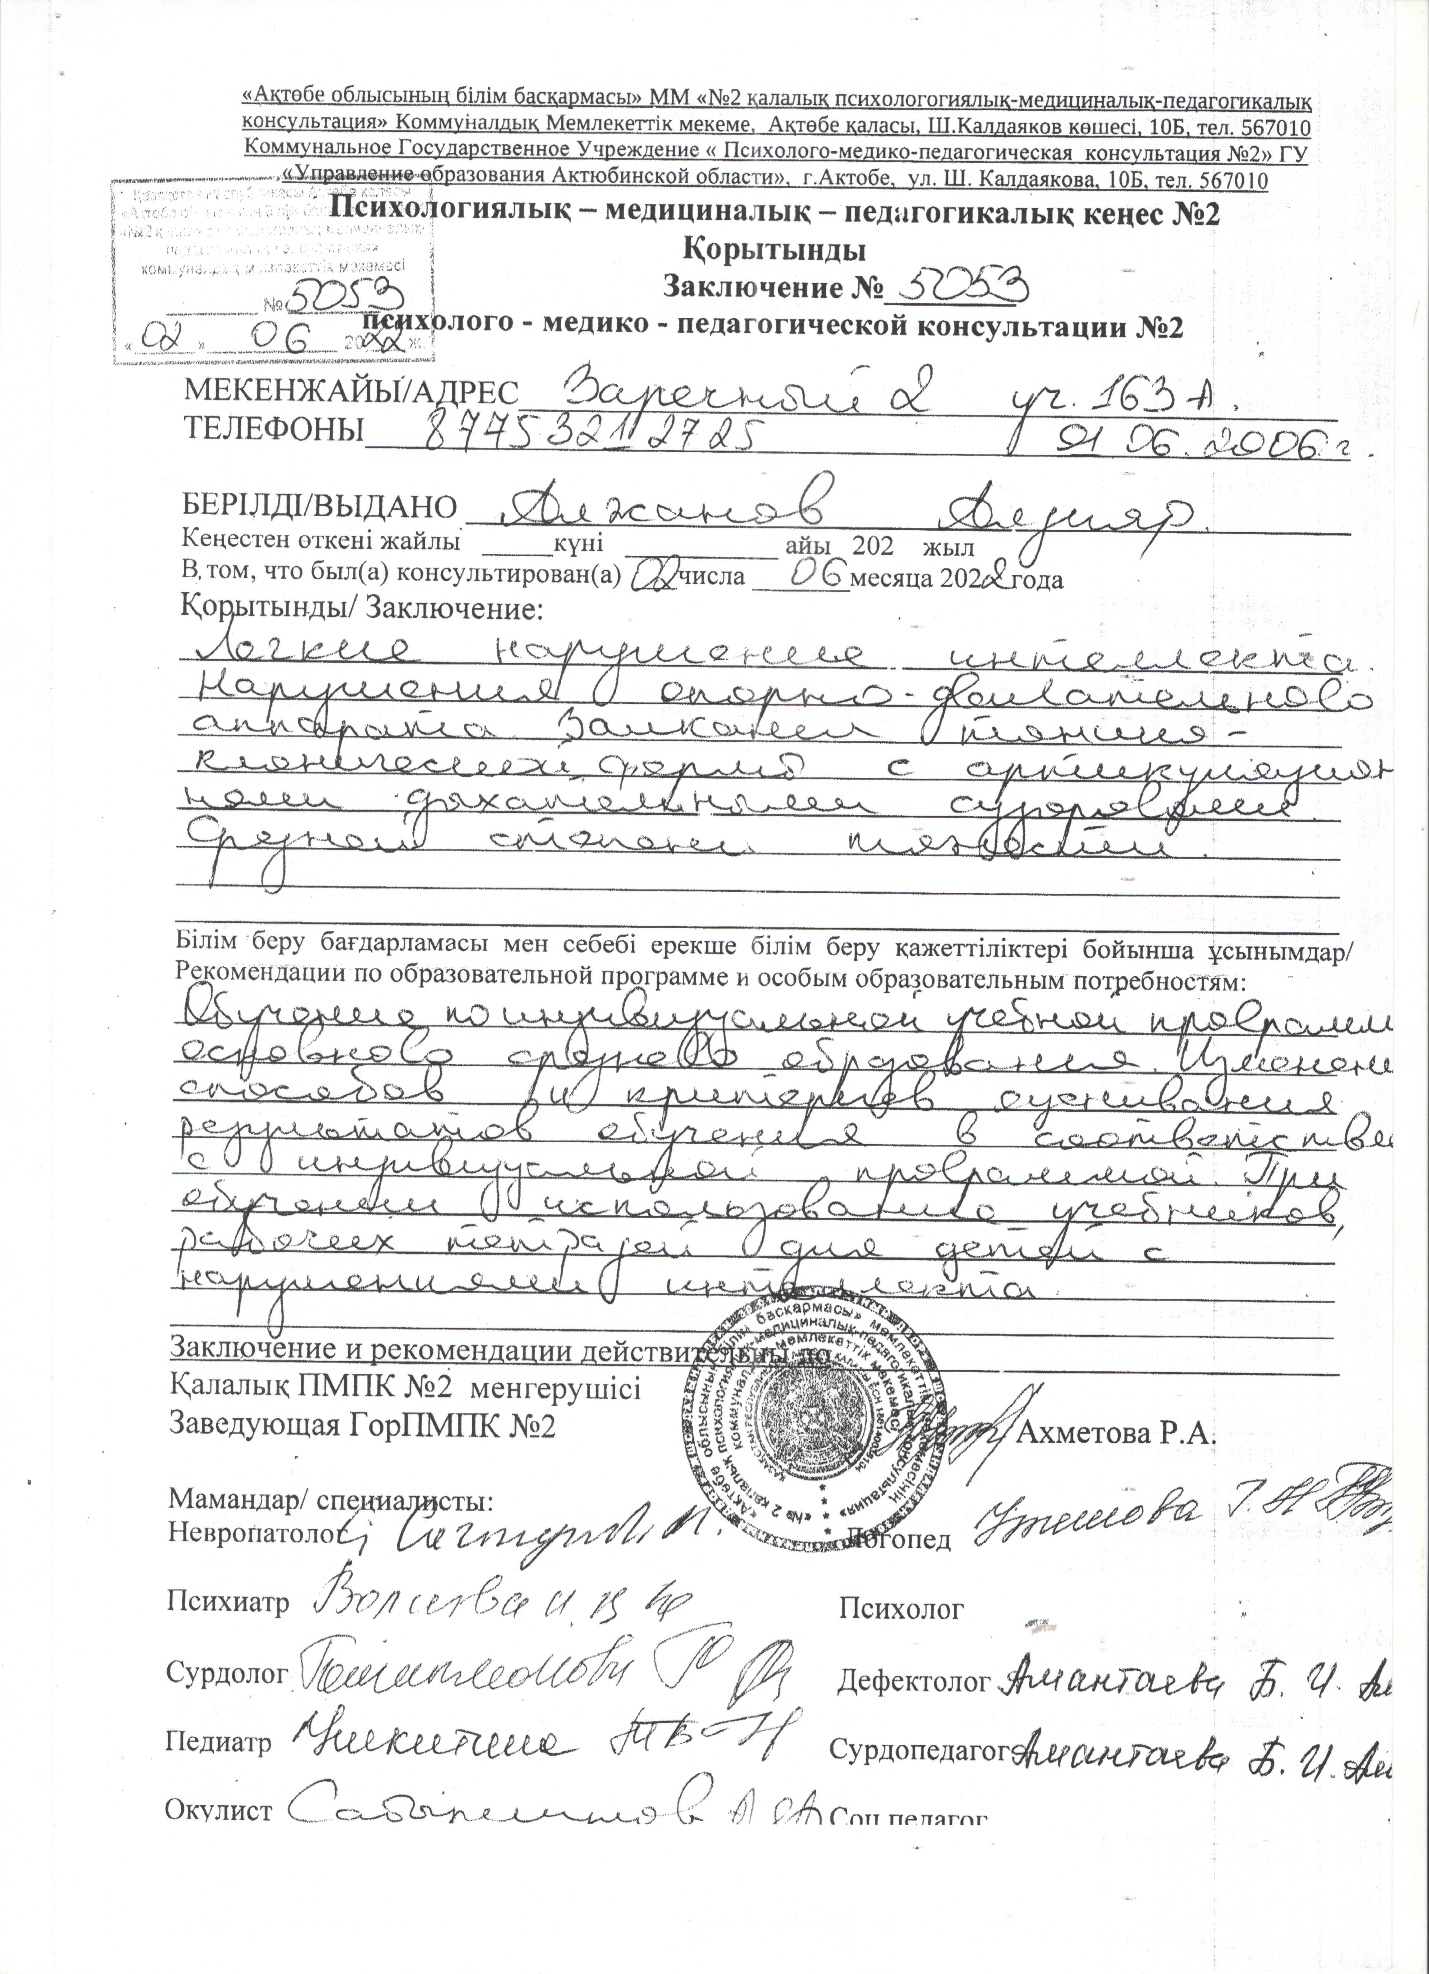 «Ақтөбе облысының білім басқармасы» ММ «№2 қалалық психологогиялық-медициналық-педагогикалық
консультация» Коммуналдық Мемлекеттік мекеме, Ақтөбе қаласы, Ш.Калдаяков көшесі, 10Б, тел. 567010
Коммунальное Государственное Учреждение « Психолого-медико-педагогическая консультация №2» ГУ
«Управление образования Актюбинской области», г.Актобе, ул. Ш. Калдаякова, 10Б, тел. 567010
Психологиялық – медициналық – педагогикалық кеңес №2
Қорытынды
Заключение № 5053
психолого - медико - педагогической консультации №2
коммуналдық мемлекеттік мекемесі
№ 5053
« 02 » 06 2022 ж.
МЕКЕНЖАЙЫ/АДРЕС Заречный 2 уч. 163 А.
ТЕЛЕФОНЫ 87753212725 01 06. 2006 г.
БЕРІЛДІ/ВЫДАНО Алжанов Алдияр.
Кеңестен өткені жайлы ______күні ____________ айы 202 жыл
В том, что был(а) консультирован(а) 02 числа 06 месяца 2022 года
Қорытынды/ Заключение:
Легкие нарушение интеллекта.
Нарушения опорно-двигательного
аппарата. Заикании тонико-
клонической формы с артикуляцион
ными дыхательными судорогами.
Средней степени тяжести.
Білім беру бағдарламасы мен себебі ерекше білім беру қажеттіліктері бойынша ұсынымдар/
Рекомендации по образовательной программе и особым образовательным потребностям:
Обучение по индивидуальной учебной программ
основного среднего обрдования. Изменени
способов и критериев оценивания
результатов обучения в соответстви
с индивидуальной программой. При
обучении использование учебников,
рабочих тетрадей для детей с
нарушениями интеллекта
Заключение и рекомендации действительны до
Қалалық ПМПК №2 менгерушісі
Заведующая ГорПМПК №2 Ахметова Р.А.
Мамандар/ специалисты:
Невропатолог Логопед
Психиатр Психолог
Сурдолог Дефектолог Амантаева Б. И.
Педиатр Никитина Сурдопедагог Амантаева Б. И.
Окулист Соц педагог